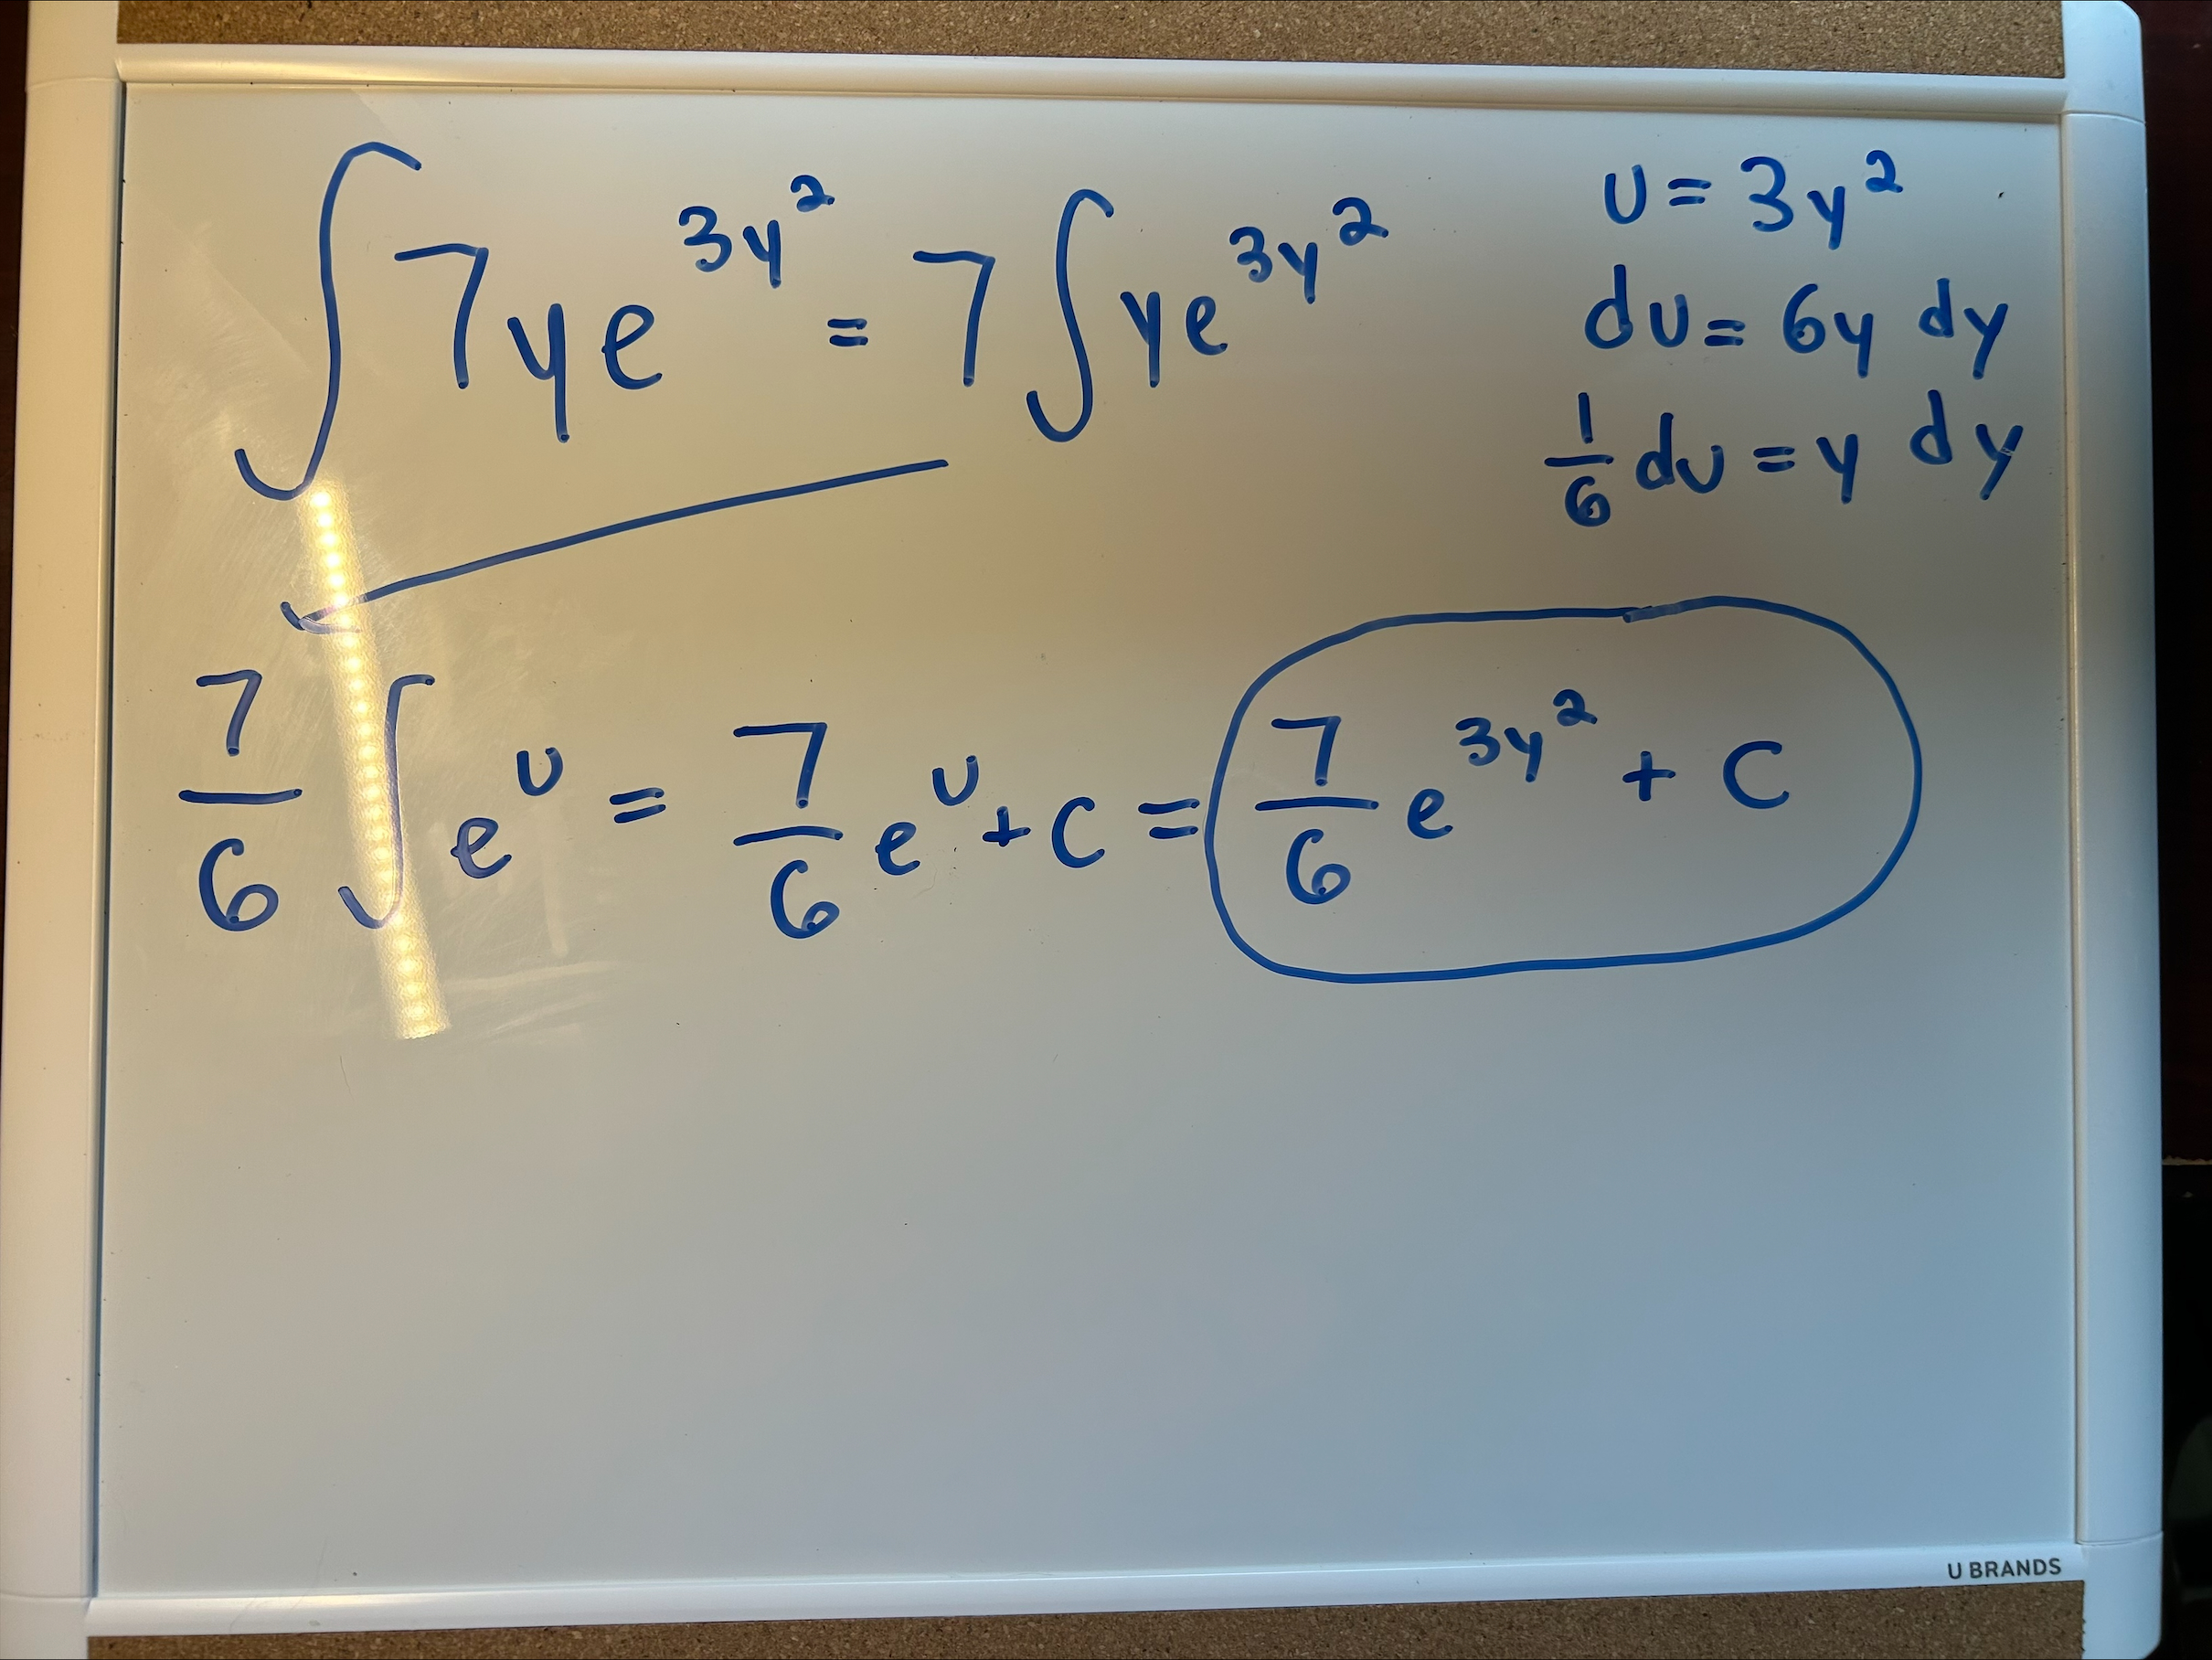 ∫ 7ye^{3y^2} = 7 ∫ ye^{3y^2}
u = 3y^2
du = 6y dy
1/6 du = y dy
7/6 ∫ e^u = 7/6 e^u + C = 7/6 e^{3y^2} + C
U BRANDS